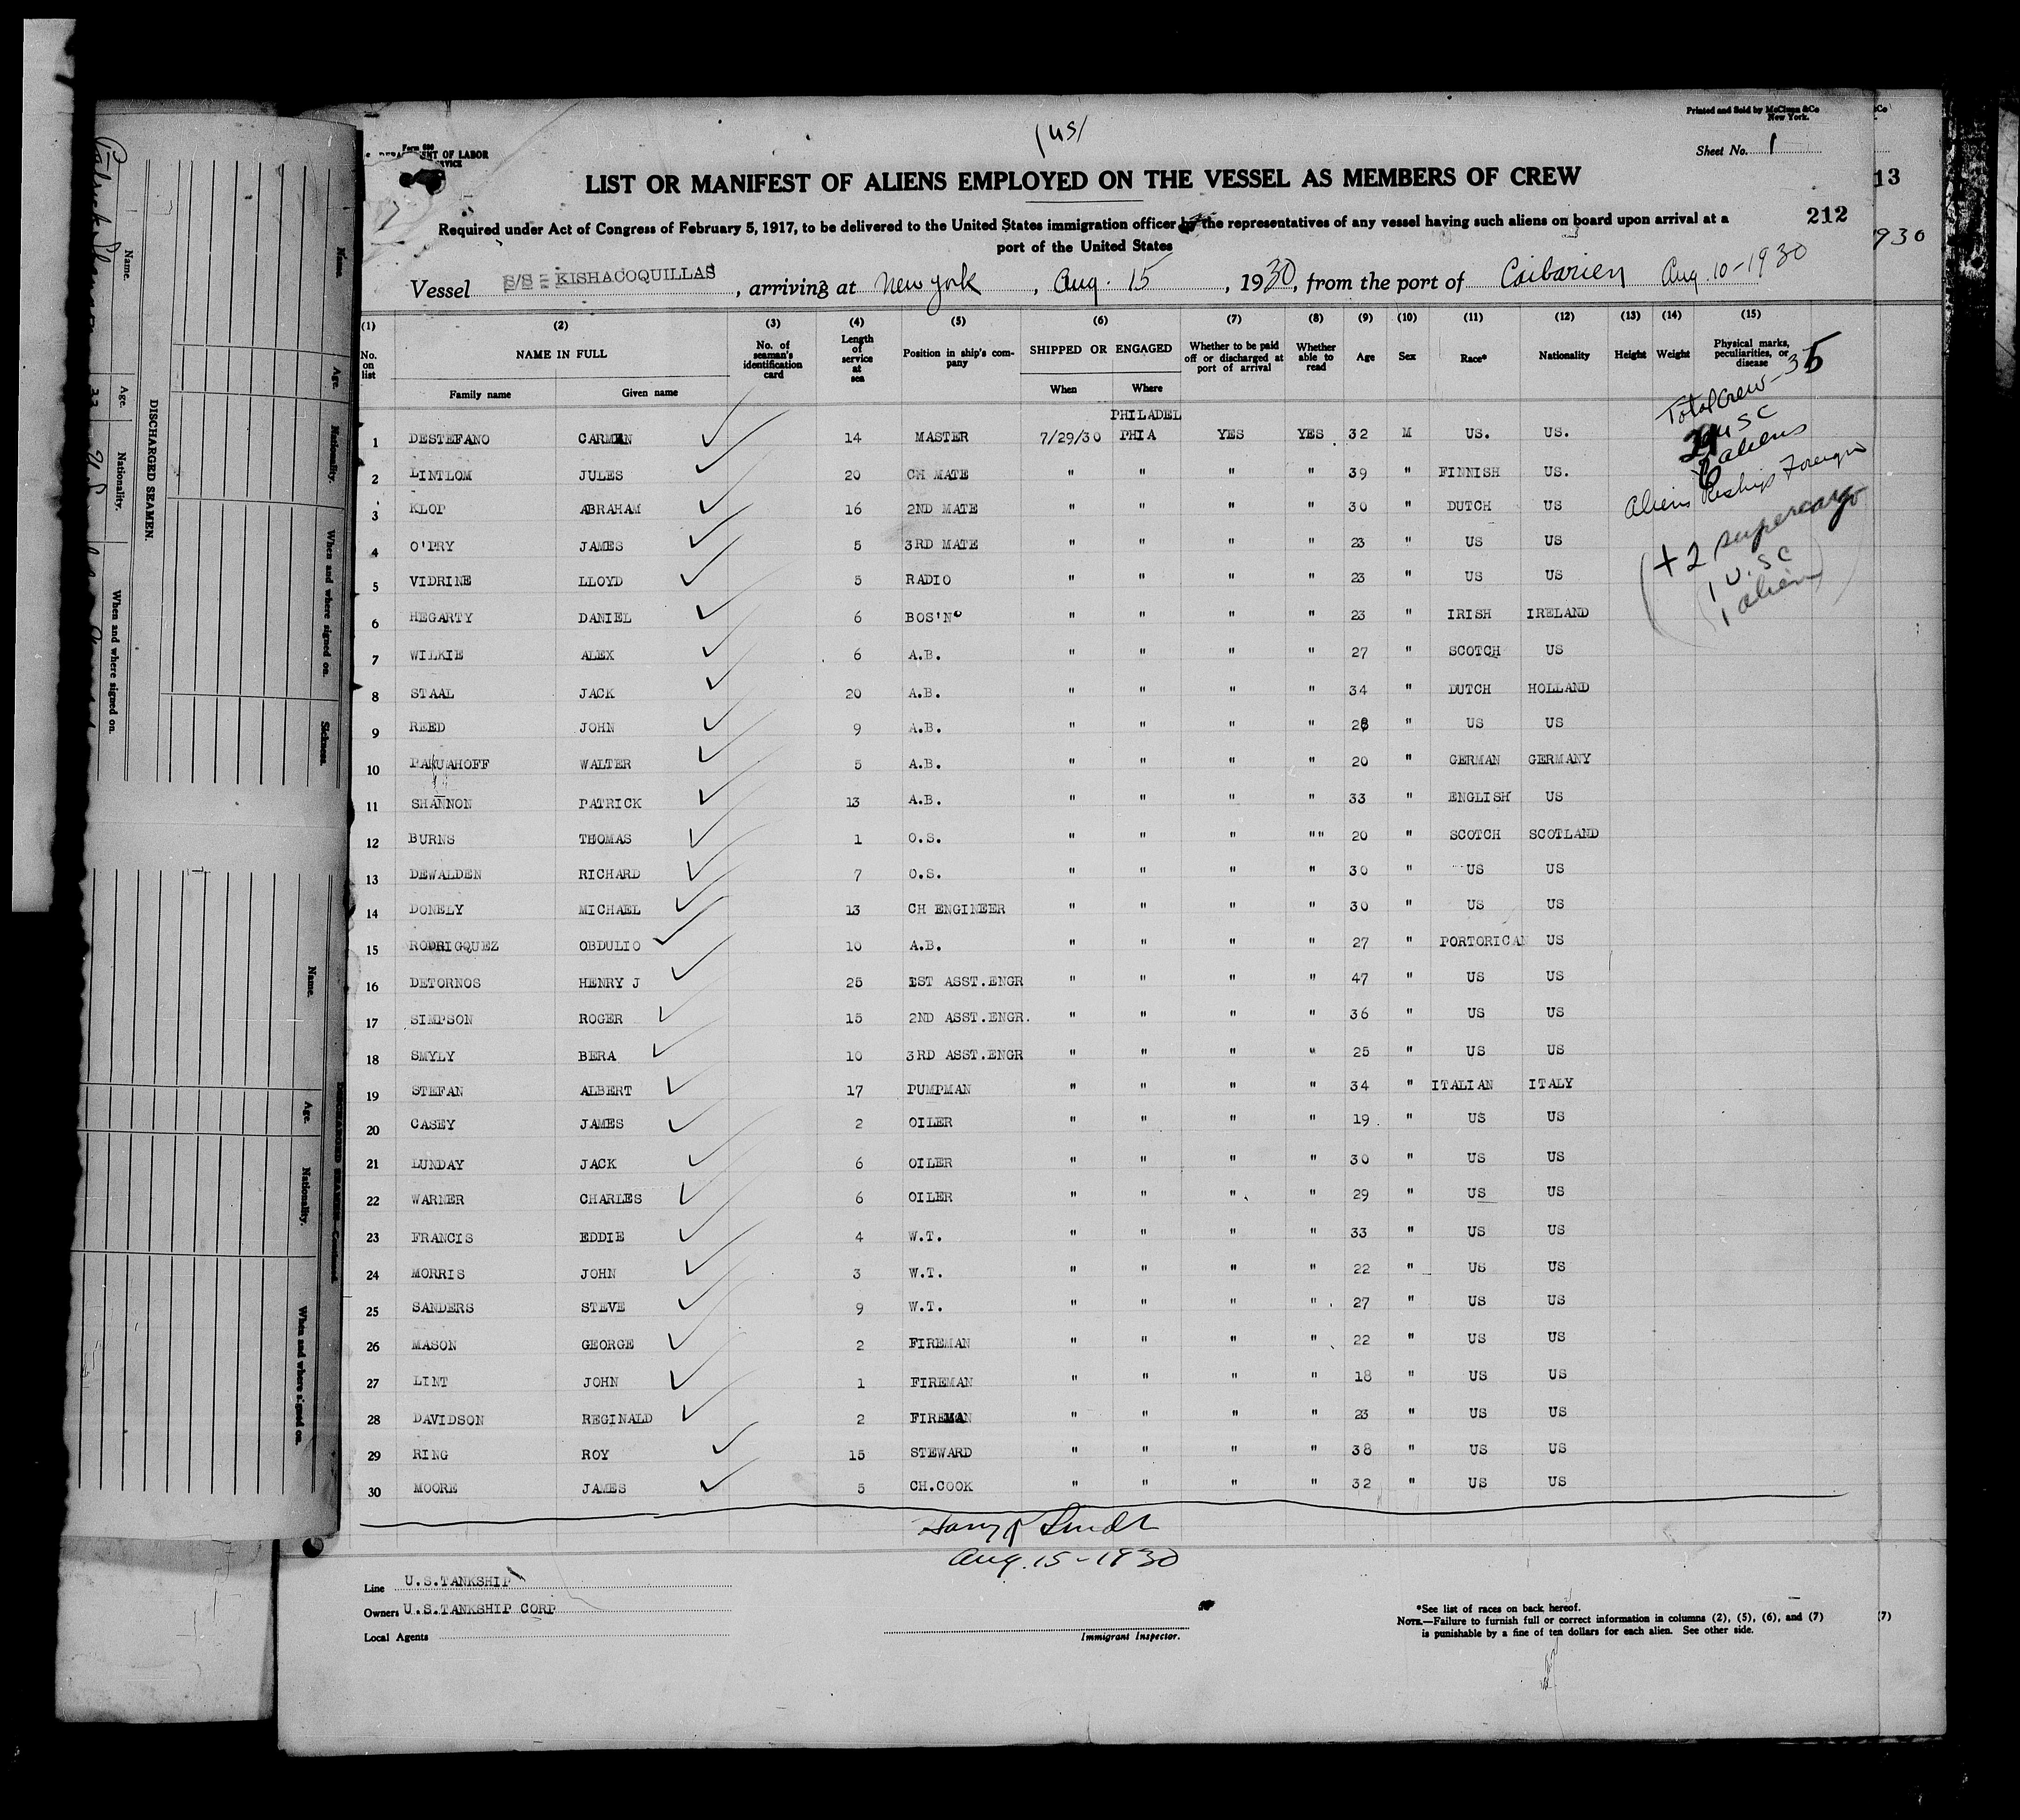 Printed and Sold by McClunn &Co
New York.
Form 680
DEPARTMENT OF LABOR
SERVICE
(us)
Sheet No. 1
LIST OR MANIFEST OF ALIENS EMPLOYED ON THE VESSEL AS MEMBERS OF CREW
13
212
Required under Act of Congress of February 5, 1917, to be delivered to the United States immigration officer by the representatives of any vessel having such aliens on board upon arrival at a
port of the United States
930
Vessel S/S = KISHACOQUILLAS, arriving at New York, Aug. 15, 1930, from the port of Caibarien Aug. 10-1930
(1) (2) (3) (4) (5) (6) (7) (8) (9) (10) (11) (12) (13) (14) (15)
No. on list NAME IN FULL Family name Given name No. of seaman's identification card Length of service at sea Position in ship's company SHIPPED OR ENGAGED When Where Whether to be paid off or discharged at port of arrival Whether able to read Age Sex Race* Nationality Height Weight Physical marks, peculiarities, or disease
PHILADEL
1 DESTEFANO CARMEN 14 MASTER 7/29/30 PHIA YES YES 32 M US. US.
2 LINTLOM JULES 20 CH MATE " " " " 39 " FINNISH US.
3 KLOP ABRAHAM 16 2ND MATE " " " " 30 " DUTCH US
4 O'PRY JAMES 5 3RD MATE " " " " 23 " US US
5 VIDRINE LLOYD 5 RADIO " " " " 23 " US US
6 HEGARTY DANIEL 6 BOS'N " " " " 23 " IRISH IRELAND
7 WILKIE ALEX 6 A.B. " " " " 27 " SCOTCH US
8 STAAL JACK 20 A.B. " " " " 34 " DUTCH HOLLAND
9 REED JOHN 9 A.B. " " " " 28 " US US
10 WALTER 5 A.B. " " " " 20 " GERMAN GERMANY
11 SHANNON PATRICK 13 A.B. " " " " 33 " ENGLISH US
12 BURNS THOMAS 1 O.S. " " " "" 20 " SCOTCH SCOTLAND
13 DEWALDEN RICHARD 7 O.S. " " " " 30 " US US
14 DONELY MICHAEL 13 CH ENGINEER " " " " 30 " US US
15 RODRIGQUEZ OBDULIO 10 A.B. " " " " 27 " PORTORICAN US
16 DETORNOS HENRY J 25 1ST ASST.ENGR " " " " 47 " US US
17 SIMPSON ROGER 15 2ND ASST.ENGR. " " " " 36 " US US
18 SMYLY BERA 10 3RD ASST.ENGR " " " " 25 " US US
19 STEFAN ALBERT 17 PUMPMAN " " " " 34 " ITALIAN ITALY
20 CASEY JAMES 2 OILER " " " " 19 " US US
21 LUNDAY JACK 6 OILER " " " " 30 " US US
22 WARNER CHARLES 6 OILER " " " " 29 " US US
23 FRANCIS EDDIE 4 W.T. " " " " 33 " US US
24 MORRIS JOHN 3 W.T. " " " " 22 " US US
25 SANDERS STEVE 9 W.T. " " " " 27 " US US
26 MASON GEORGE 2 FIREMAN " " " " 22 " US US
27 LINT JOHN 1 FIREMAN " " " " 18 " US US
28 DAVIDSON REGINALD 2 FIREMAN " " " " 23 " US US
29 RING ROY 15 STEWARD " " " " 38 " US US
30 MOORE JAMES 5 CH.COOK " " " " 32 " US US
Total Crew - 35
USC
6 aliens
Aliens Reship Foreign
(+2 supercargo
1 U.SC
1 alien)
Aug. 15-1930
Line U.S.TANKSHIP
Owners U.S.TANKSHIP CORP
Local Agents
Immigrant Inspector.
*See list of races on back hereof.
NOTE.—Failure to furnish full or correct information in columns (2), (5), (6), and (7)
is punishable by a fine of ten dollars for each alien. See other side.
(7)
DISCHARGED SEAMEN.
Name. Age. Nationality. When and where signed on.
Name. Age. Nationality. When and where signed on. Sickness.
Patrick Shannon 33
DISCHARGED SEAMEN—Continued
Name. Age. Nationality. When and where signed on.